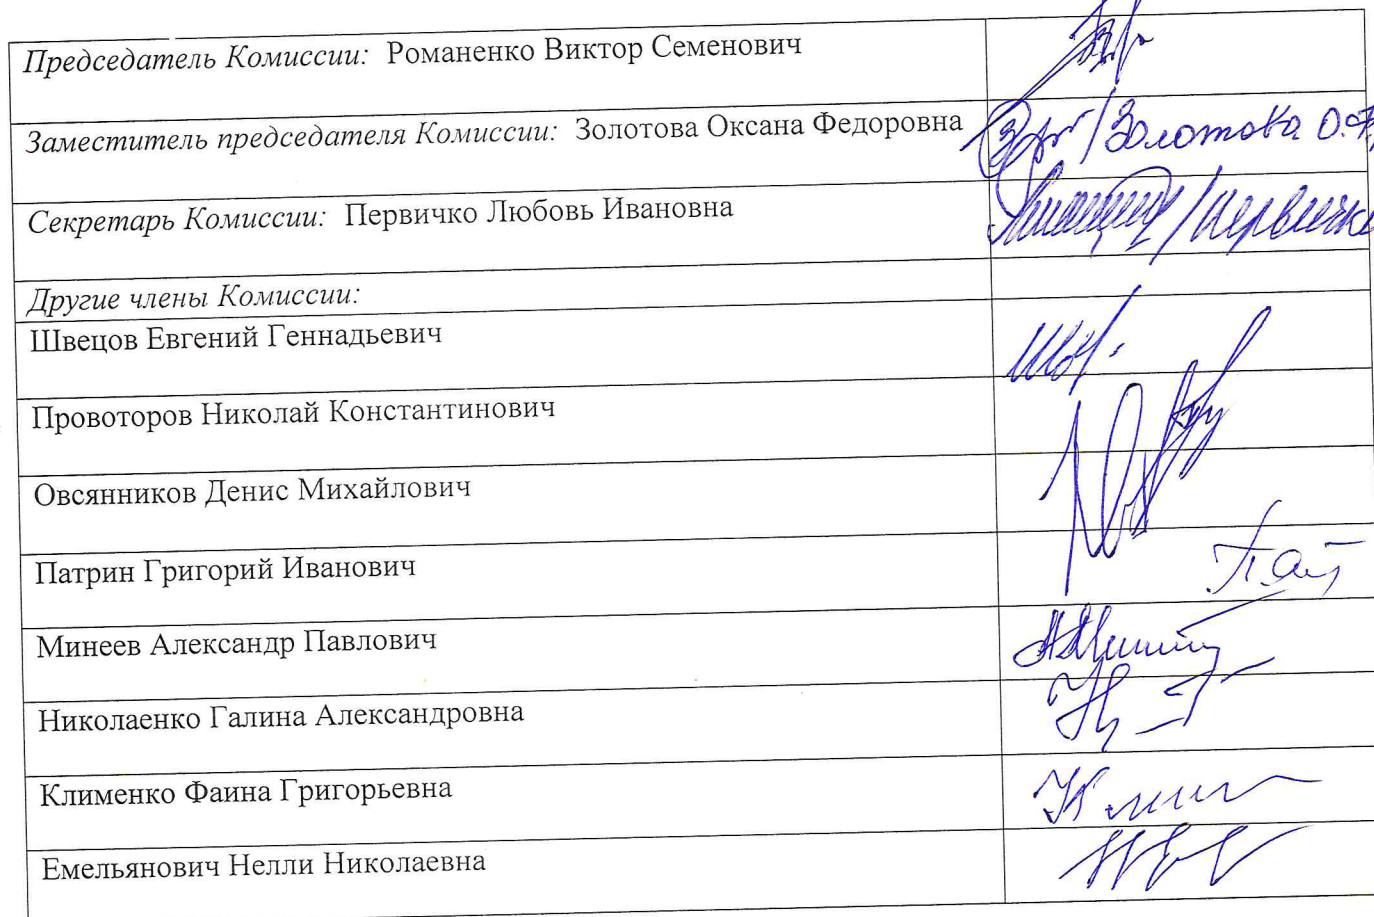 Председатель Комиссии: Романенко Виктор Семенович
Заместитель председателя Комиссии: Золотова Оксана Федоровна
/Золотова О.Ф.
Секретарь Комиссии: Первичко Любовь Ивановна
/Первичко
Другие члены Комиссии:
Швецов Евгений Геннадьевич
Провоторов Николай Константинович
Овсянников Денис Михайлович
Патрин Григорий Иванович
Минеев Александр Павлович
Николаенко Галина Александровна
Клименко Фаина Григорьевна
Емельянович Нелли Николаевна